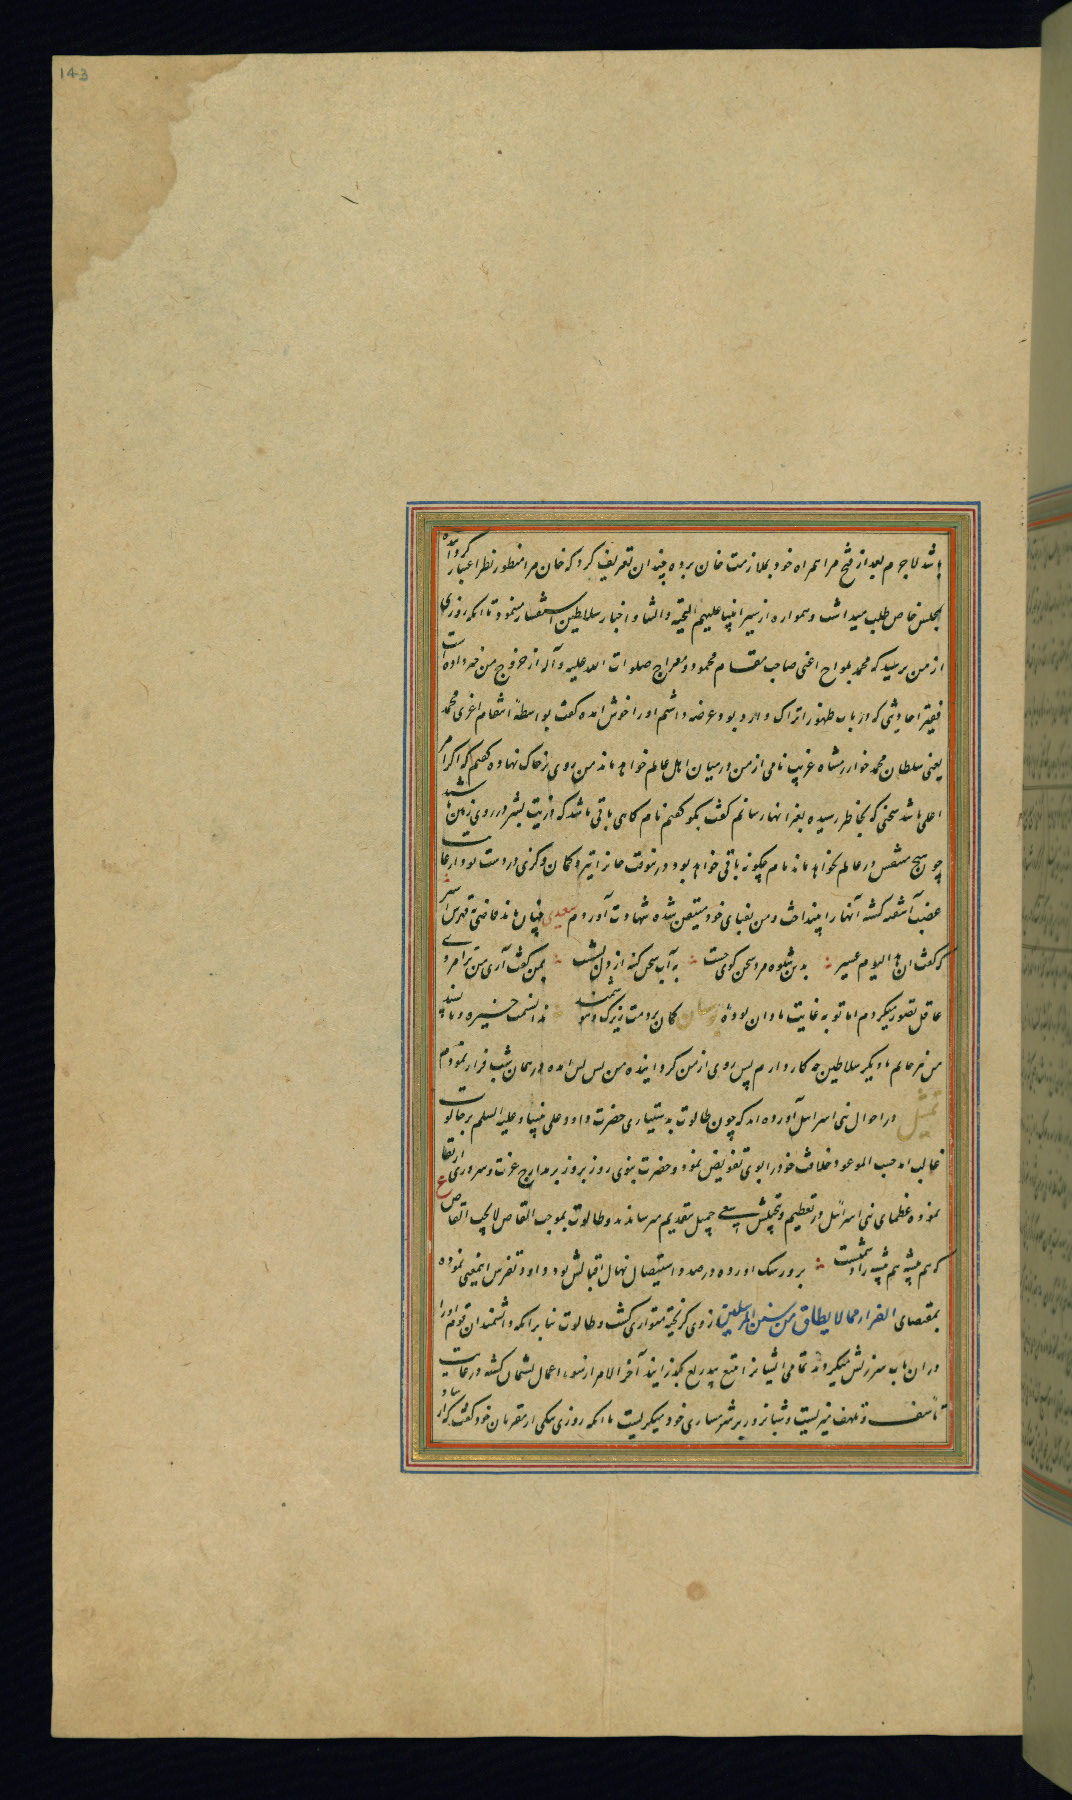 143
باشد لاجرم بعد از فتح مرا همراه خود بملازمت خان برده چندان تعریف کرد که خان مرا منظور نظر اعتبار کردانیده
بمجلس خاص طلب میداشت و همواره از سیر انبیا علیهم التحیه و الثنا و اخبار سلاطین استفسار مینمود تا انکه روزی
از من پرسید که محمد یلواح اعنی صاحب مقام محمود و معراج صلوات الله علیه و آله از خروج من خبر داده است
فقیر احادیثی که در باب ظهور اتراک وارد بود عرضه داشتم او را خوش آمده کفت بواسطهٔ انتقام اغری محمد
یعنی سلطان محمد خوارزمشاه غریب نامی از من در میان اهل عالم خواهد ماند من روی بر خاک نهاده کفتم که اکر امر
اعلی باشد سخنی که بخاطر رسیده بعز انهار رسانم کفت بکو کفتم نام کاهی باقی باشد که ذریت بشر در روی زمین باشد
چون هیچ متنفس در عالم نخواهد ماند نام چکونه باقی خواهد بود درینوقت خانرا تیر و کمان و کزی در دست بود از غایت
غضب آشفته کشته آنها را بینداخت و من بفنای خود متیقن شده شهادت آوردم سعیدی چنان ماند قاضی
که کفت ان هذا الیوم عسیر بدین شیوه مرد سخن کوی چست به آب سخن کینه از دل بشست بمن کفت آری من ترا مردی
عاقل تصور میکردم اما تو به غایت نادان بودهٔ کمان بردمت زیرک و هوشمند ندانستمت خیره و ناپسند
من نبر عالم با دیکر سلاطین چه کار دارم پس روی از من کردانیده من پس پس آمده در همان شب فرار نمودم
تمثیل در احوال بنی اسراییل آورده اند که چون طالوت به دستیاری حضرت داود علی نبینا و علیه السلم بر جالوت
غالب آمد حسب الموعود خلافت خود را بوی تفویض نمود و حضرت نبوی روز بروز بر مدارج عزت و سروری ارتقا
نموده عظمای بنی اسراییل در تعظیم و تبجیلش سعی جمیل بتقدیم میرسانیدند و طالوت بموجب القاص لا یحب القاص ع
که هم پیشه هم پیشه را دشمنست بر او رشک آورده در صدد استیصال نهال اقبالش بود داود تفرس اینمعنی نموده
بمقتضای الفرار مما لا یطاق من سنن المرسلین از وی کریخته متواری کشت و طالوت بنابر آنکه دانشمندان قوم او را
در ان باب سرزنش میکردند تمامی ایشانرا بتیغ بیدریغ بکذرانید آخر الامر از سوء اعمال پشیمان کشته در غایت
تاسف و تلهف میزیست و شبانروز بر شرمساری خود میکریست تا انکه روزی بیکی از مقربان خود کفت که